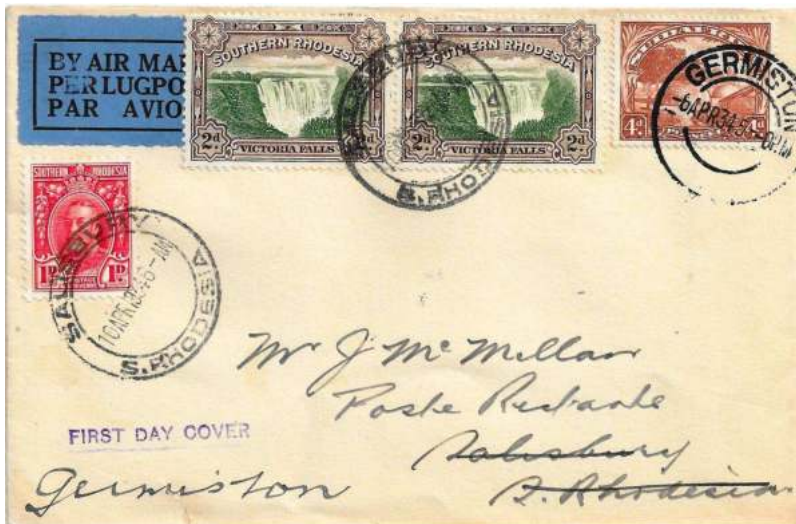 BY AIR MA
PER LUGPO
PAR AVIO
SOUTHERN RHODESIA
2d
VICTORIA FALLS
2d
SOUTHERN RHODESIA
2d
VICTORIA FALLS
2d
S. RHODESIA
4d
GERMISTON
-6APR34
SOUTHERN RHODESIA
1D
1D
SALISBURY
10 APR 34 6-AM
S. RHODESIA
Mr J McMillan
Poste Restante
Salisbury
S. Rhodesia
FIRST DAY COVER
Germiston